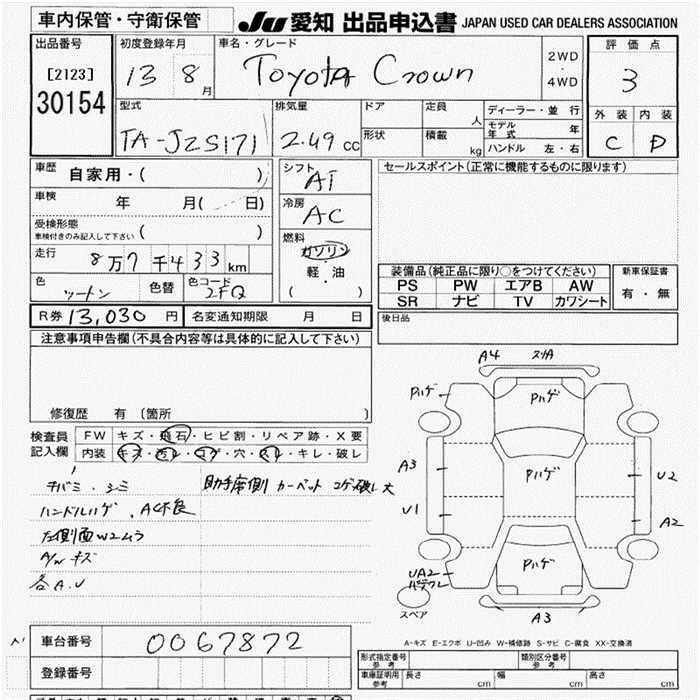 車内保管・守衛保管
JU 愛知 出品申込書 JAPAN USED CAR DEALERS ASSOCIATION
出品番号 初度登録年月 車名・グレード 評価点
[2123] 13 8 月 Toyota Crown 2WD・4WD 3
30154
型式 排気量 ドア 定員 人 ディーラー・並行 外装 内装
モデル年式 年
TA-JZS171 2.49 cc 形状 積載 kg ハンドル 左・右 C D
車歴 自家用・( ) シフト AT セールスポイント(正常に機能するものに限ります)
車検 年 月( 日) 冷房 AC
受検形態 ( )
車検付きのみ記入して下さい
走行 8万7千433km 燃料 ガソリン 軽・油 ( )
装備品(純正品に限り○をつけてください) 新車保証書
PS PW エアB AW 有・無
SR ナビ TV カワシート
色 ツートン 色替 色コード 2FQ
R券 13,030 円 名変通知期限 月 日 後日品
注意事項申告欄(不具合内容等は具体的に記入して下さい)
修復歴 有 (箇所 )
検査員 FW キズ・飛石・ヒビ割・リペア跡・X要
記入欄 内装 キズ・汚レ・コゲ・穴・スレ・キレ・破レ
チバミ・シミ 助手席側 カーペット コゲ破レ大
ハンドルハゲ、AC不良
左側面W2ムラ
A/Wキズ
各A.U
A4 スリA
Pハゲ Pハゲ
A3 Pハゲ U2
U1 A2
UA2 Pハゲ
スペア A3
A-キズ E-エクボ U-凹み W-補修跡 S-サビ C-腐食 XX-交換済
車台番号 0067872
登録番号
形式指定番号 参考 類別区分番号 参考
車庫証明用 参考 長さ cm 幅 cm 高さ cm